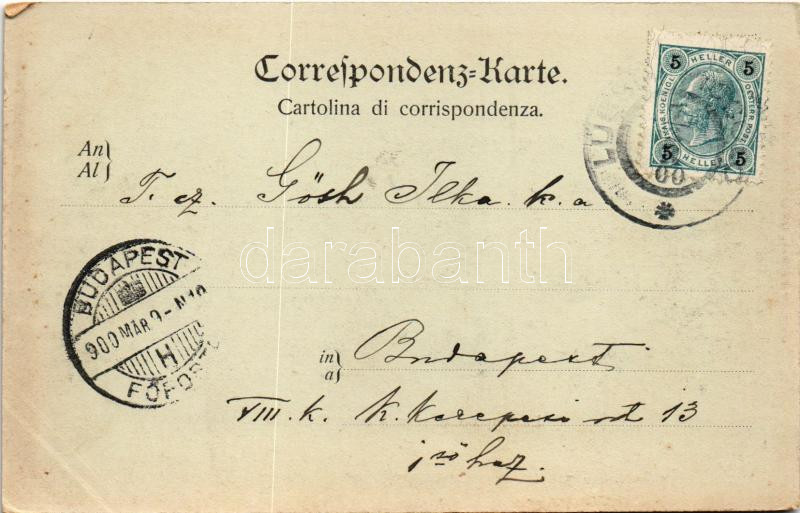 Correspondenz=Karte.
Cartolina di corrispondenza.
An
Al
T. cz. Gösh Ilka k. a
in
a
Budapest
VIII. k. K. Kerepesi út 13
i ső ház.
5 HELLER 5
KAIS. KOENIGL. OESTERR. POST
5 HELLER 5
LU
00
BUDAPEST
900 MÁR
H
FŐPOST
darabanth